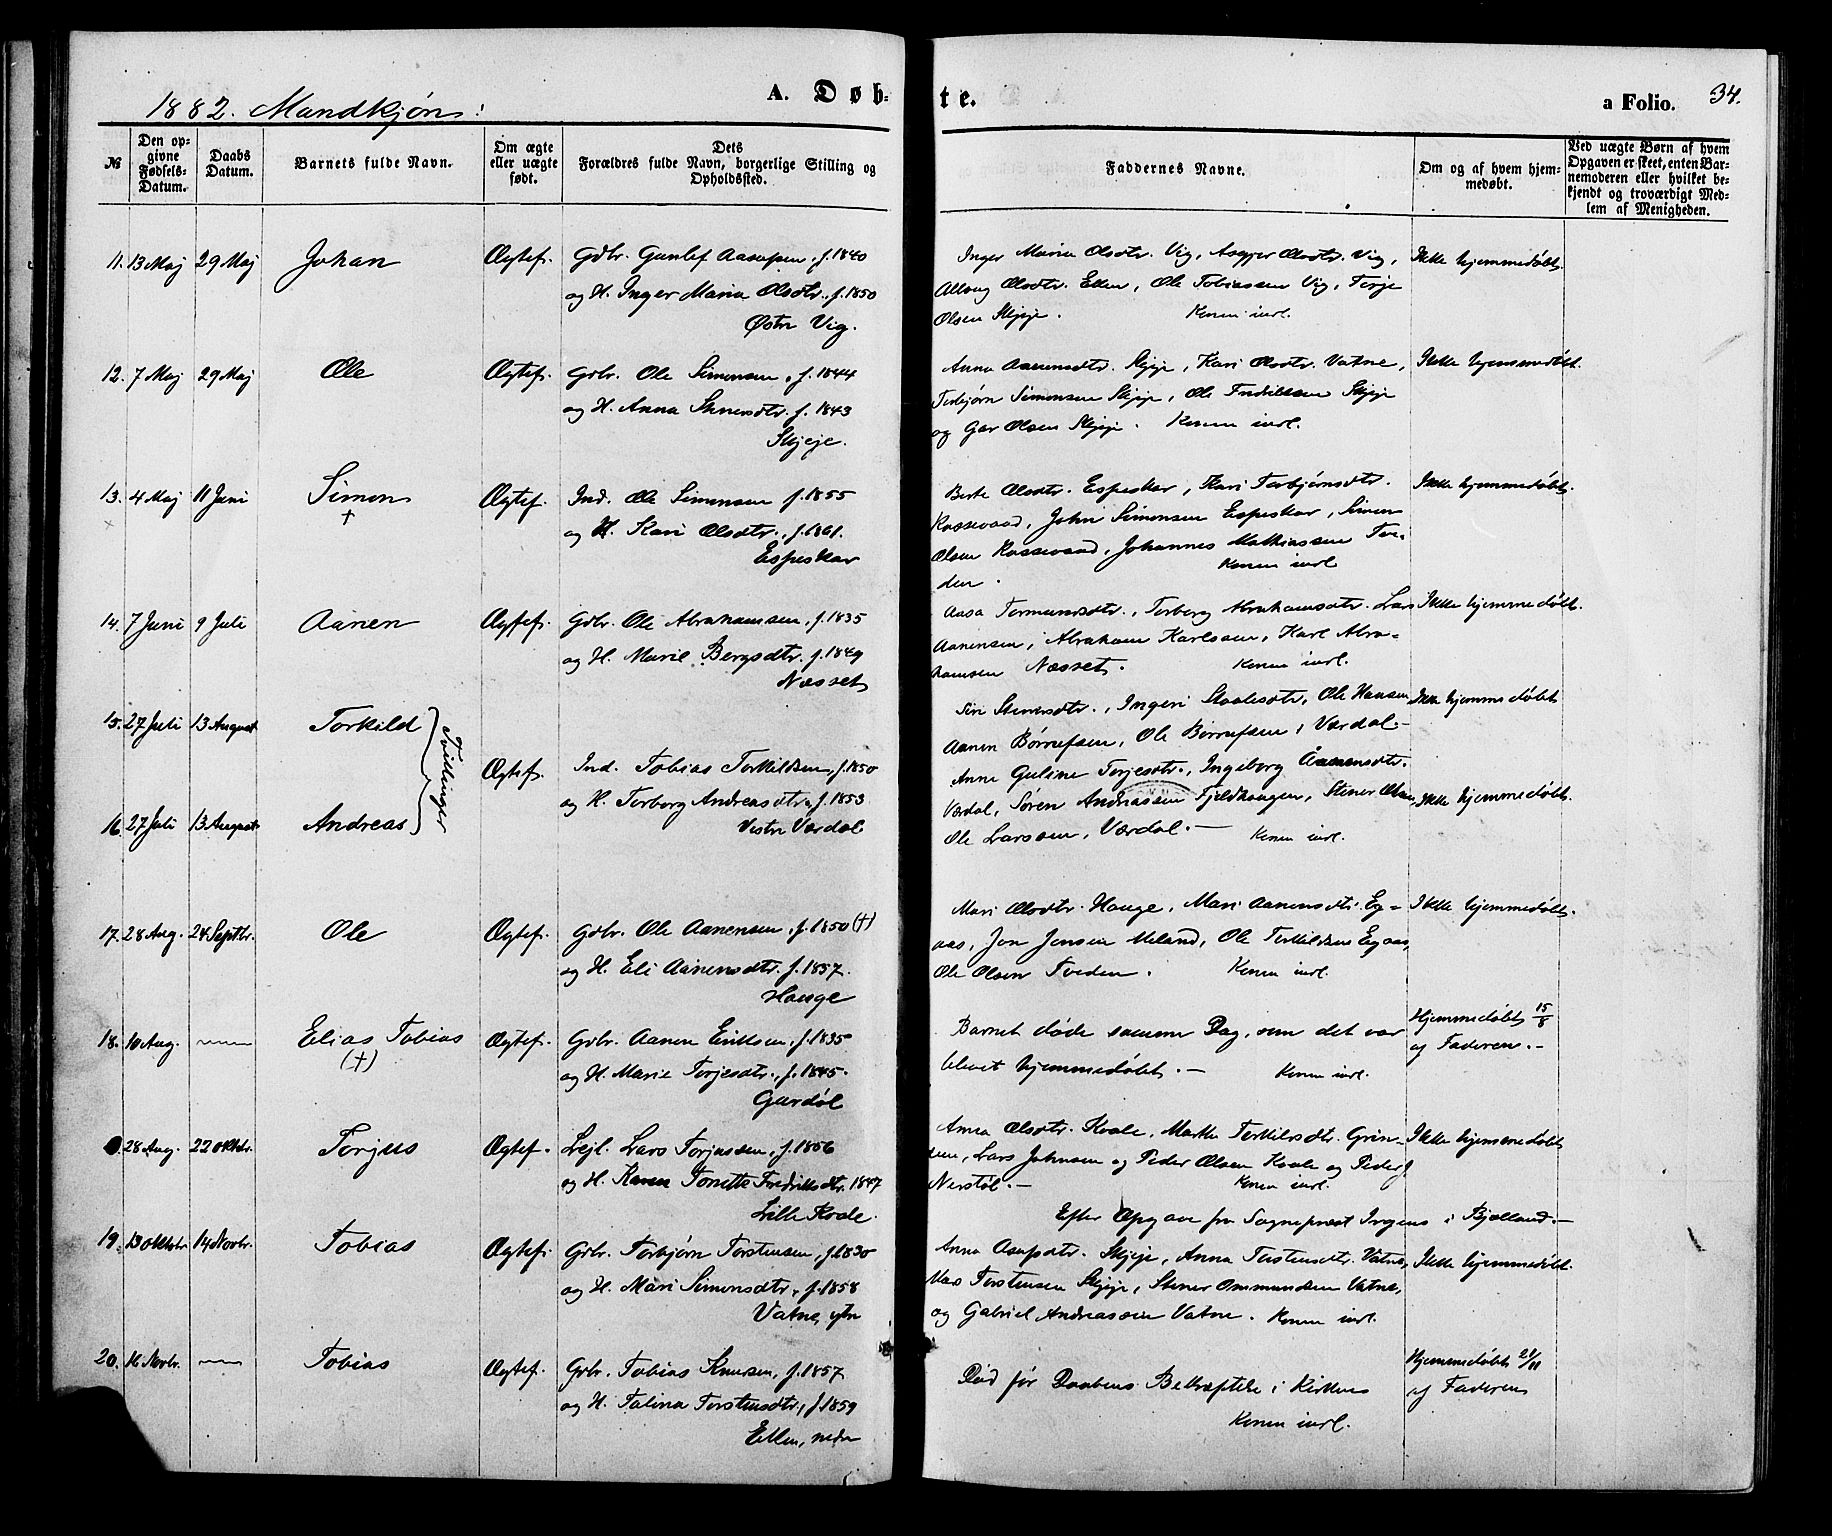 1882. Mandkjøn:
A. Døbte.
a Folio. 34.
№
Den opgivne Fødsels-Datum.
Daabs Datum.
Barnets fulde Navn.
Om ægte eller uægte født.
Dets Forældres fulde Navn, borgerlige Stilling og Opholdssted.
Faddernes Navne.
Om og af hvem hjemmedøbt.
Ved uægte Børn af hvem Opgaven er skeet, enten Barnemoderen eller hvilket bekjendt og troværdigt Medlem af Menigheden.
11. 13 Maj 29 Maj Johan Ægtef. Gdbr. Gunlef Aasupsen, f. 1840
og H. Inger Maria Olsdtr. f. 1850
Østre Vig.
Inger Maria Olsdtr. Vig, Asgjer Olsdtr. Vig,
Allvug Olsdtr. Eллen, Ole Tobiassen Vig, Terje
Olsen Skjeje. Konen indl.
Ikke hjemmedøbt.
12. 7 Maj 29 Maj Ole Ægtef. Grbr. Ole Simonsen, f. 1844
og H. Anna Stenersdtr. f. 1843
Skjeje.
Anna Aanensdtr. Skjeje, Kari Olsdtr. Vatne,
Torbjørn Simonsen Skjeje, Ole Fredriksen Skjeje
og Olsen Skjeje. Konen indl.
Ikke hjemmedøbt.
13. 4 Maj 11 Juni Simon Ægtef. Ind. Ole Simonsen f. 1855
†
og H. Kari Olsdtr., f. 1861.
Espeskar
Berte Olsdtr. Espeskar, Kari Torbjørnsdtr.
Rossevaad, John Simonsen Espeskar, Simon
Olsen Rossevaad, Johannes Mathiassen Tve-
den. Konen indl
Ikke hjemmedøbt.
14. 7 Juni 9 Juli Aanen Ægtef. Gdbr. Ole Abrahamsen, f. 1835
og H. Marie Bergsdtr. f. 1849
Næsset
Aasa Tormundsdtr., Torborg Abrahamsdtr. Lars
Aanensen, Abraham Karlssen, Karl Abra-
hamsen Næsset. Konen indl.
Ikke hjemmedøbt.
15. 27 Juli 13 August Torkild
Tvillinger
Ægtef. Ind. Tobias Torkildsen, f. 1850
og H. Torborg Andreasdtr., f. 1853
Vestre Værdal
16. 27 Juli 13 August Andreas
Siri Stenersdtr., Ingeri Staalesdtr, Ole Hansen
Aanen Børrufsen, Ole Børrufsen, Værdal.-
Ikke hjemmedøbt
Anne Guline Torjesdtr., Ingeborg Aanensdtr.
Værdal, Søren Andreassen Fjeldhaugen, Stener Olsen,
Ole Larssen, Værdal.- Konen indl.
Ikke hjemmedøbt.
17. 28 Aug. 24 Septbr. Ole Ægtef. Gdbr. Ole Aanensen, f. 1850 (†)
og H. Eli Aanensdtr. f. 1857.
Hauge
Mari Olsdtr. Hauge, Mari Aanensdtr. Eg-
aas, Jon Jonsen Meland, Ole Torkildsen Egaas,
Ole Olsen Tveden. Konen indl.
Ikke hjemmedøbt.
18. 10 Aug. — Elias Tobias Ægtef. Gdbr. Aanen Eriksen, f. 1835
(†)
og H. Marie Torjesdtr., f. 1845.
Gurdøl
Barnet døde samme Dag, som det var
blevet hjemmedøbt.- Konen indl.
Hjemmedøbt 15/8
af Faderen.-
28 Aug. 22 Oktbr. Torjus Ægtef. Lejl. Lars Torjussen, f. 1856
og H. Karen Tonette Fredriksdtr. 1847
Lille Kvale.
Anna Olsdtr. Kvale, Marthe Torkilsdtr. Grin-
den, Lars Johnsen og Peder Olsen Kvale og Peder J
Nerstøl.- Konen indl.
Ikke hjemmedøbt
Efter Opgave fra Sognepræst Irgens i Bjelland.-
19. 13 Oktbr. 14 Novbr. Tobias Ægtef. Grbr. Torbjørn Torstensen, f. 1830
og H. Mari Simonsdtr., f. 1858
Vatne, ytre
Anna Asupsdtr. Skjeje, Anna Torstensdtr. Vatne,
Torstensen Skjeje, Stener Ommundsen Vatne,
og Gabriel Andreassen Vatne. Konen indl.
Ikke hjemmedøbt.
20. 16 Novbr. — Tobias Ægtef. Grbr. Tobias Knudsen, f. 1857
og H. Talina Torstensdtr., f. 1859
nedre
Død før Daabens Bekræftelse i Kirken
Konen indl.
Hjemmedøbt 21/11
af Faderen